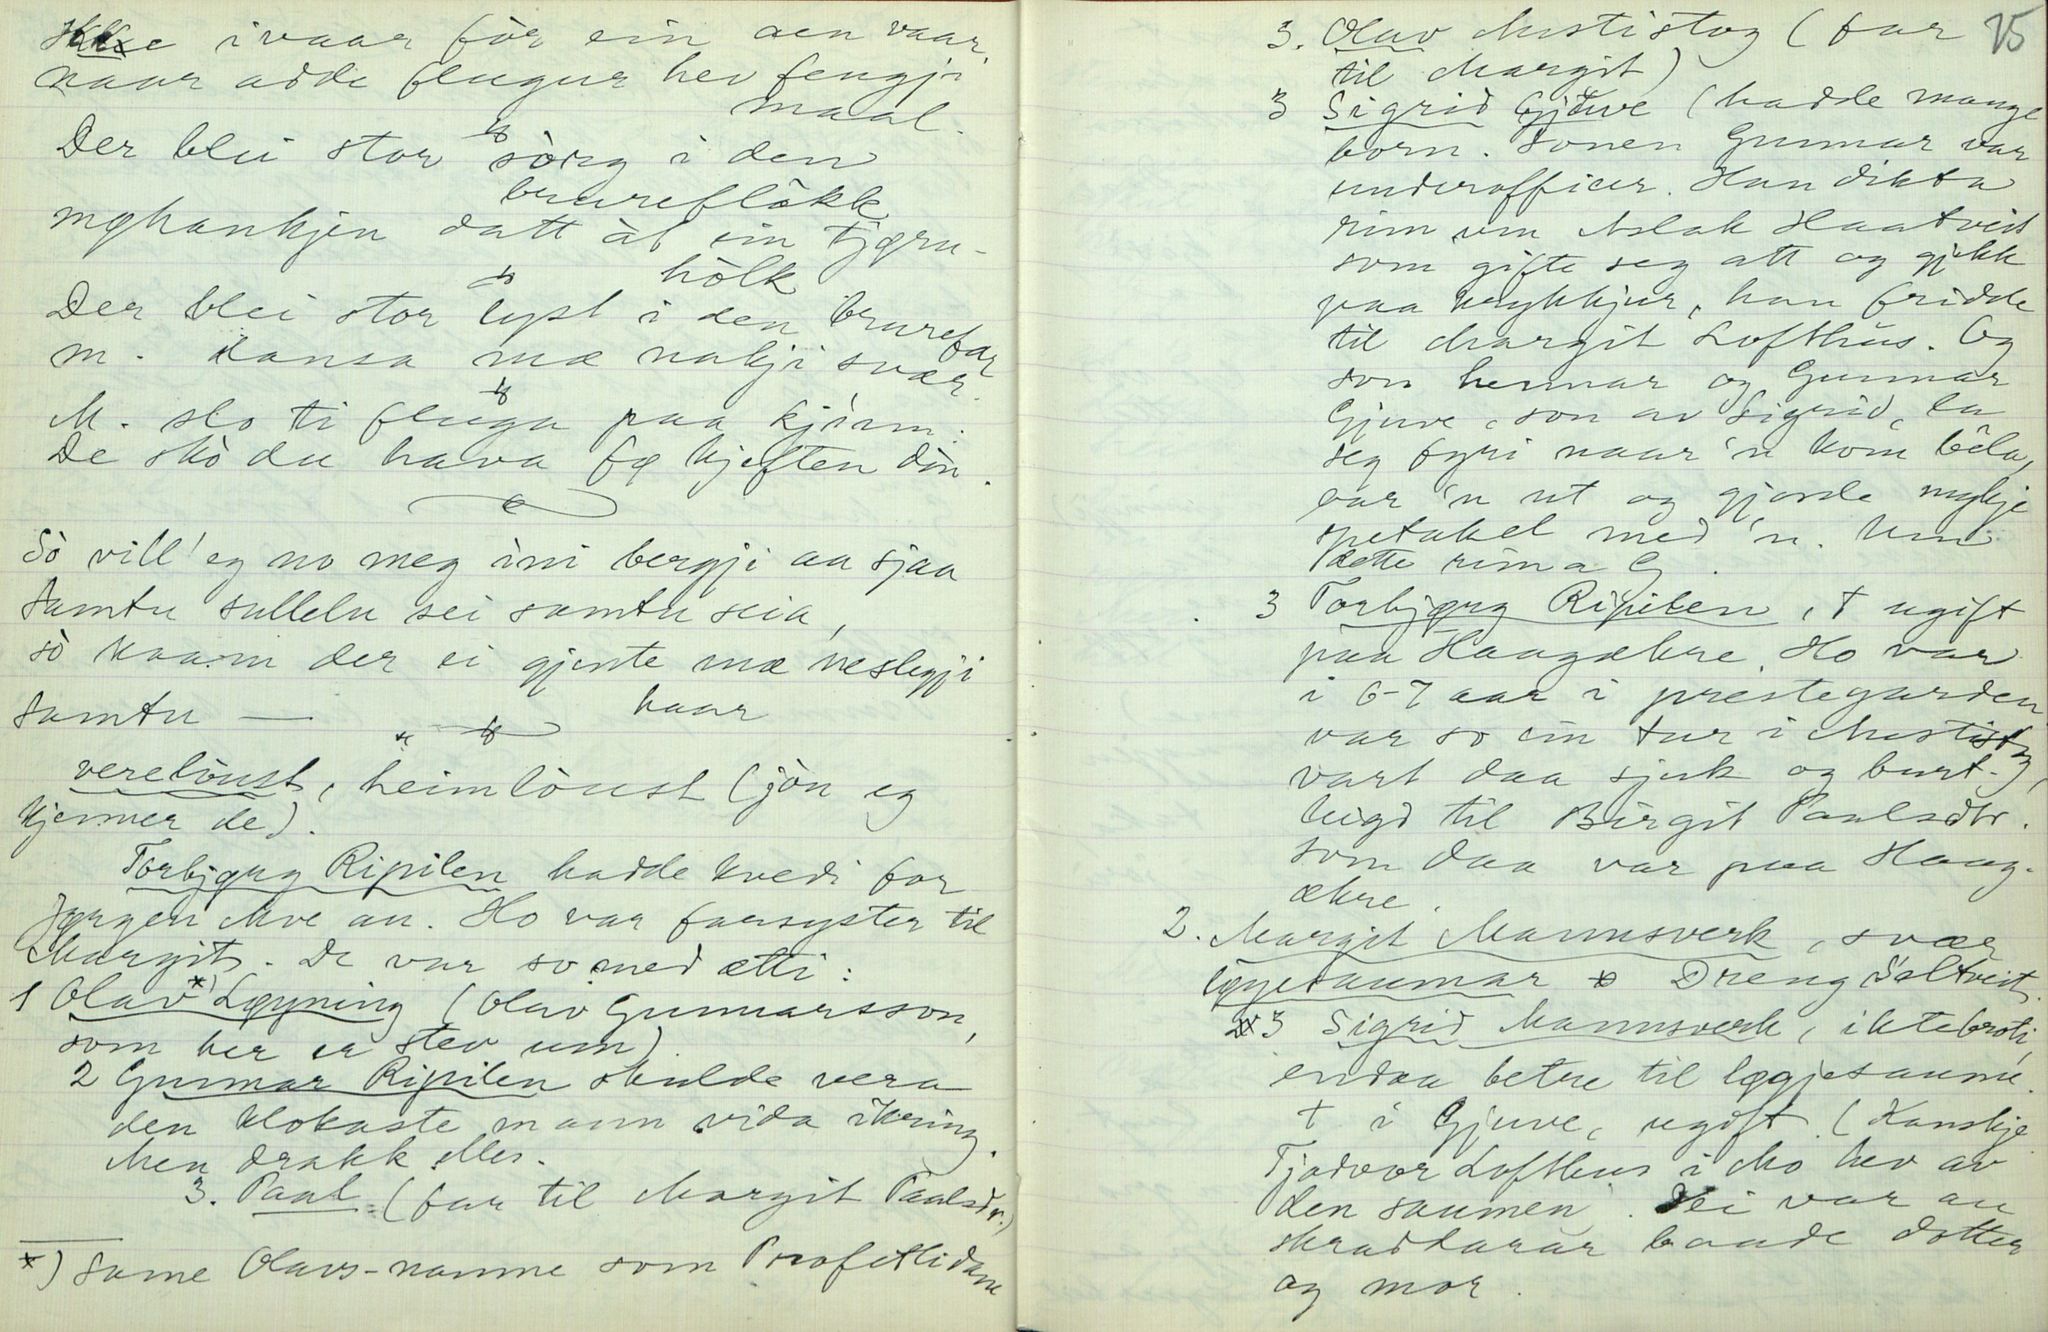 ikkje ivaar før ein aen vaar,
naar adde flugur hev fengji
maal.
Der blei stor sòrg i den
brureflòkk
myhankjen datt àt ein tjøru-
hòlk
Der blei stor lyst i den brurefær
m. dansa mæ nokji svær.
M. slo ti fluga paa kjinn:
De skò du hava fø kjeften din.
Sò vill' eg no meg ini bergji aa sjaa
Samtu sullelu sei samtu seia,
sò kaam der ei gjente mæ neslegji
haar
Samtu —
verelònst, heimlònst (jòu eg
kjenner de).
Torbjørg Ripilen hadde kvedi for
Jørgen Moe au. Ho var farsyster til
Margit. De var so med ætti:
1 Olav *) Løyning (Olav Gunnarsson,
som her er stev um).
2 Gunnar Ripilen skulde vera
den klokaste mann vida ikring.
Men drakk elles.
3. Paal (far til Margit Paalsdr.)
*) Same Olavs-namne som Profetlidane
75
3. Olav Mustistog (far
til Margit)
3 Sigrid Gjuve (hadde mange
born. Sonen Gunnar var
underofficer. Han dikta
rim um Aslak Haatveit
som gifte seg att og gjekk
paa krykkjur, han fridde
til Margit Lofthus. Og
son hennar og Gunnar
Gjuve, son av Sigrid, la
seg fyri naar 'n kom bêla,
var 'n ut og gjorde mykje
spetakel med 'n. Um
dette rima G.
3 Torbjørg Ripilen, † ugift
paa Haugækre. Ho var
i 6-7 aar i prestegarden
var so ein tur i Mustistog,
vart daa sjuk og burt-
leigd til Birgit Paalsdtr.
som daa var paa Haug-
ækre.
2. Margit Mannsverk, svær
løyesaumar * Dreng Saltveit.
3 Sigrid Mannsverk, iktebroti,
endaa betre til løggjesaume.
† i Gjuve, ugift. (Kanskje
Tjodvor Lofthus i Mo hev av
den saumen. Dei var au
skraddarar baade dotter
og mor.